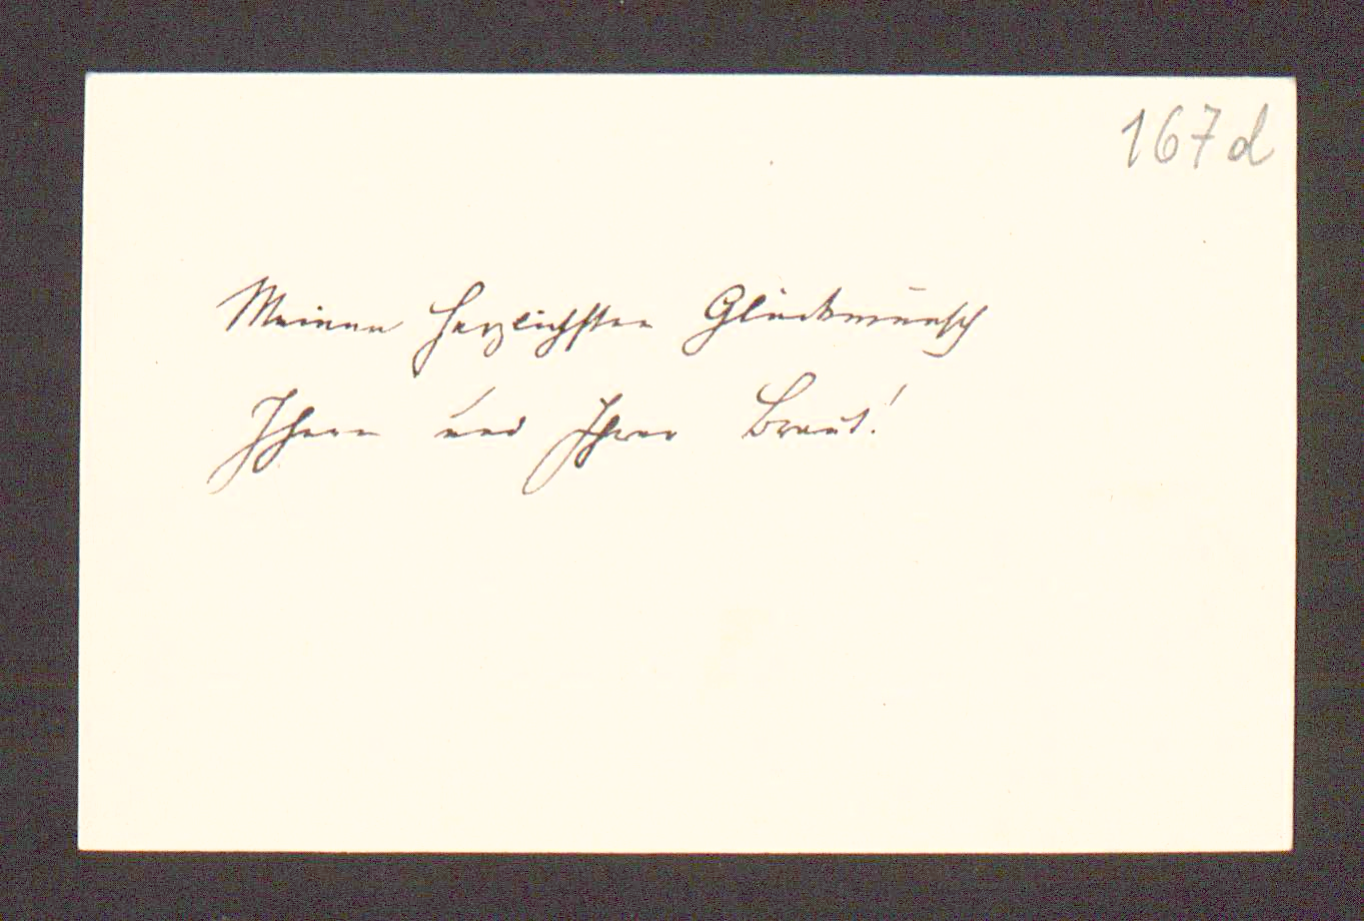 167d
Meinen herzlichsten Glückwunsch
Ihnen und Ihrer Braut!